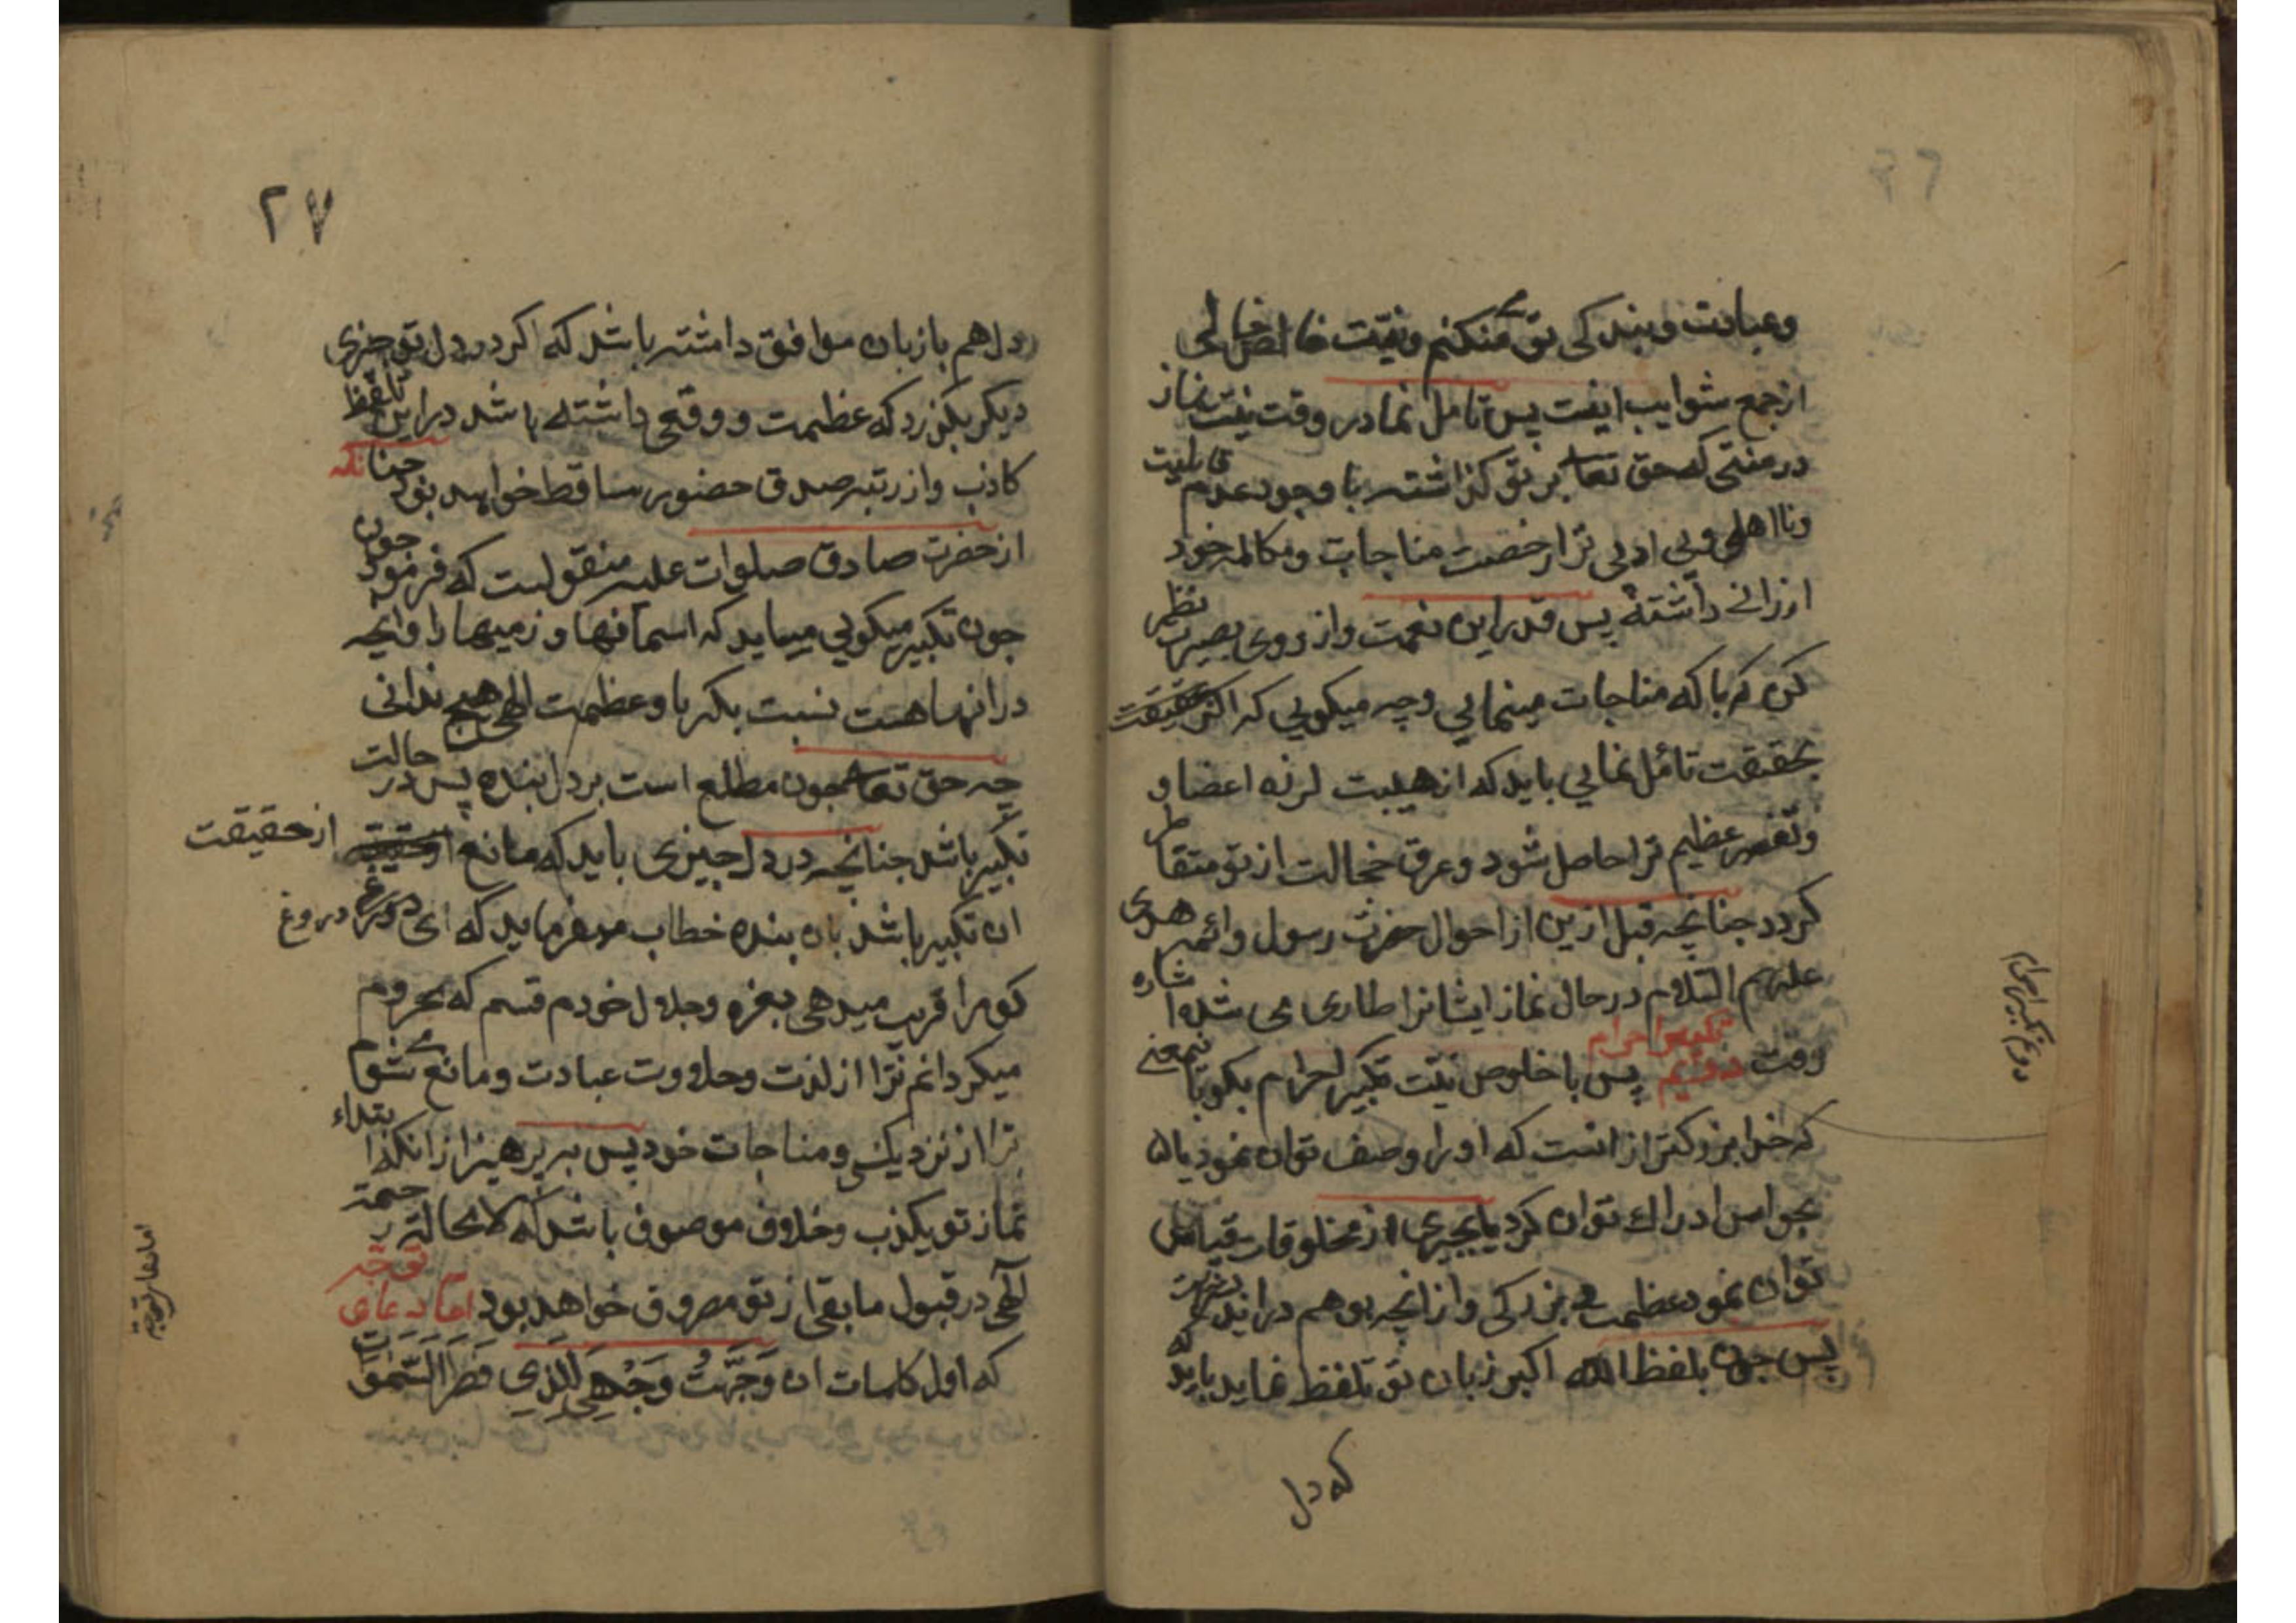 وعبادت و بندکی تو میکنم و نیت خالص خالی
از جمع شوایب اینست پس تامل نما در وقت نیت نماز
در منتی که حق تعا بر تو کذاشته با وجود عدم قابلیت
ونا اهلی و بی ادبی ترا رخصت مناجات و مکالمه خود
ارزانی داشته پس قدر این نعمت و از روی بصیرت نظر
کن که با که مناجات مینمایی و چه میکویی که اکر
بحقیقت تامل نمایی باید که از هیبت لرزه اعضا و
وتغیر عظیم ترا حاصل شود و عرق خجالت از تو متقاطر
کردد جنانچه قبل ازین از احوال حضرت رسول و ائمه هدی
علیهم السلام در حال نماز ایشانرا طاری می شد اشاره
رفت تکبیر احرام پس با خلوص نیت تکبیر احرام بکو باینمعنی
که خدا بزرکتر از انست که او را وصف توان نمود یا
بحواس ادراک توان کرد یا بچیزی از مخلوقات قیاس
توان نمود عظمت و بزرکی و از انچه بوهم در اید
پس جون بلفظ الله اکبر زبان تو تلفظ نماید باید که
که دل
دوم تکبیر احرام
۲۷
دل هم با زبان موافق داشته باشد که اکر در دل تو چیزی
دیکر بکذرد که عظمت و وقعی داشته باشد در این تلفظ
کاذب و از رتبه صدق حضور ساقط خواهد بود جنانکه
از حضرت صادق صلوات علیه منقولست که فرمود جون
جون تکبیر میکویی میباید که اسمانها و زمینها را و انچه
در انهاهست نسبت بکبریا و عظمت الهی هیچ ندانی
چه حق تعا جون مطلع است بر دل بنده پس در حالت
تکبیر باشد جنانچه در دل چیزی باید که مانع از حقیقت
ان تکبیر باشد بان بنده خطاب میفرماید که ای دروغ
کو مرا فریب میدهی بعزه و جلال خودم قسم که محروم
میکردانم ترا از لذت و حلاوت عبادت و مانع میشوم
ترا از نزدیکی و مناجات خود پس بپرهیز از انکه ابتداء
نماز تو بکذب و خلاف موصوف باشد که لامحاله رحمة
الهی در قبول مابقی از تو مصروف خواهد بود اما دعای توجه
که اول کلمات ان وَجَّهْتُ وَجْهِيَ لِلَّذِي فَطَرَ السَّمٰوَاتِ